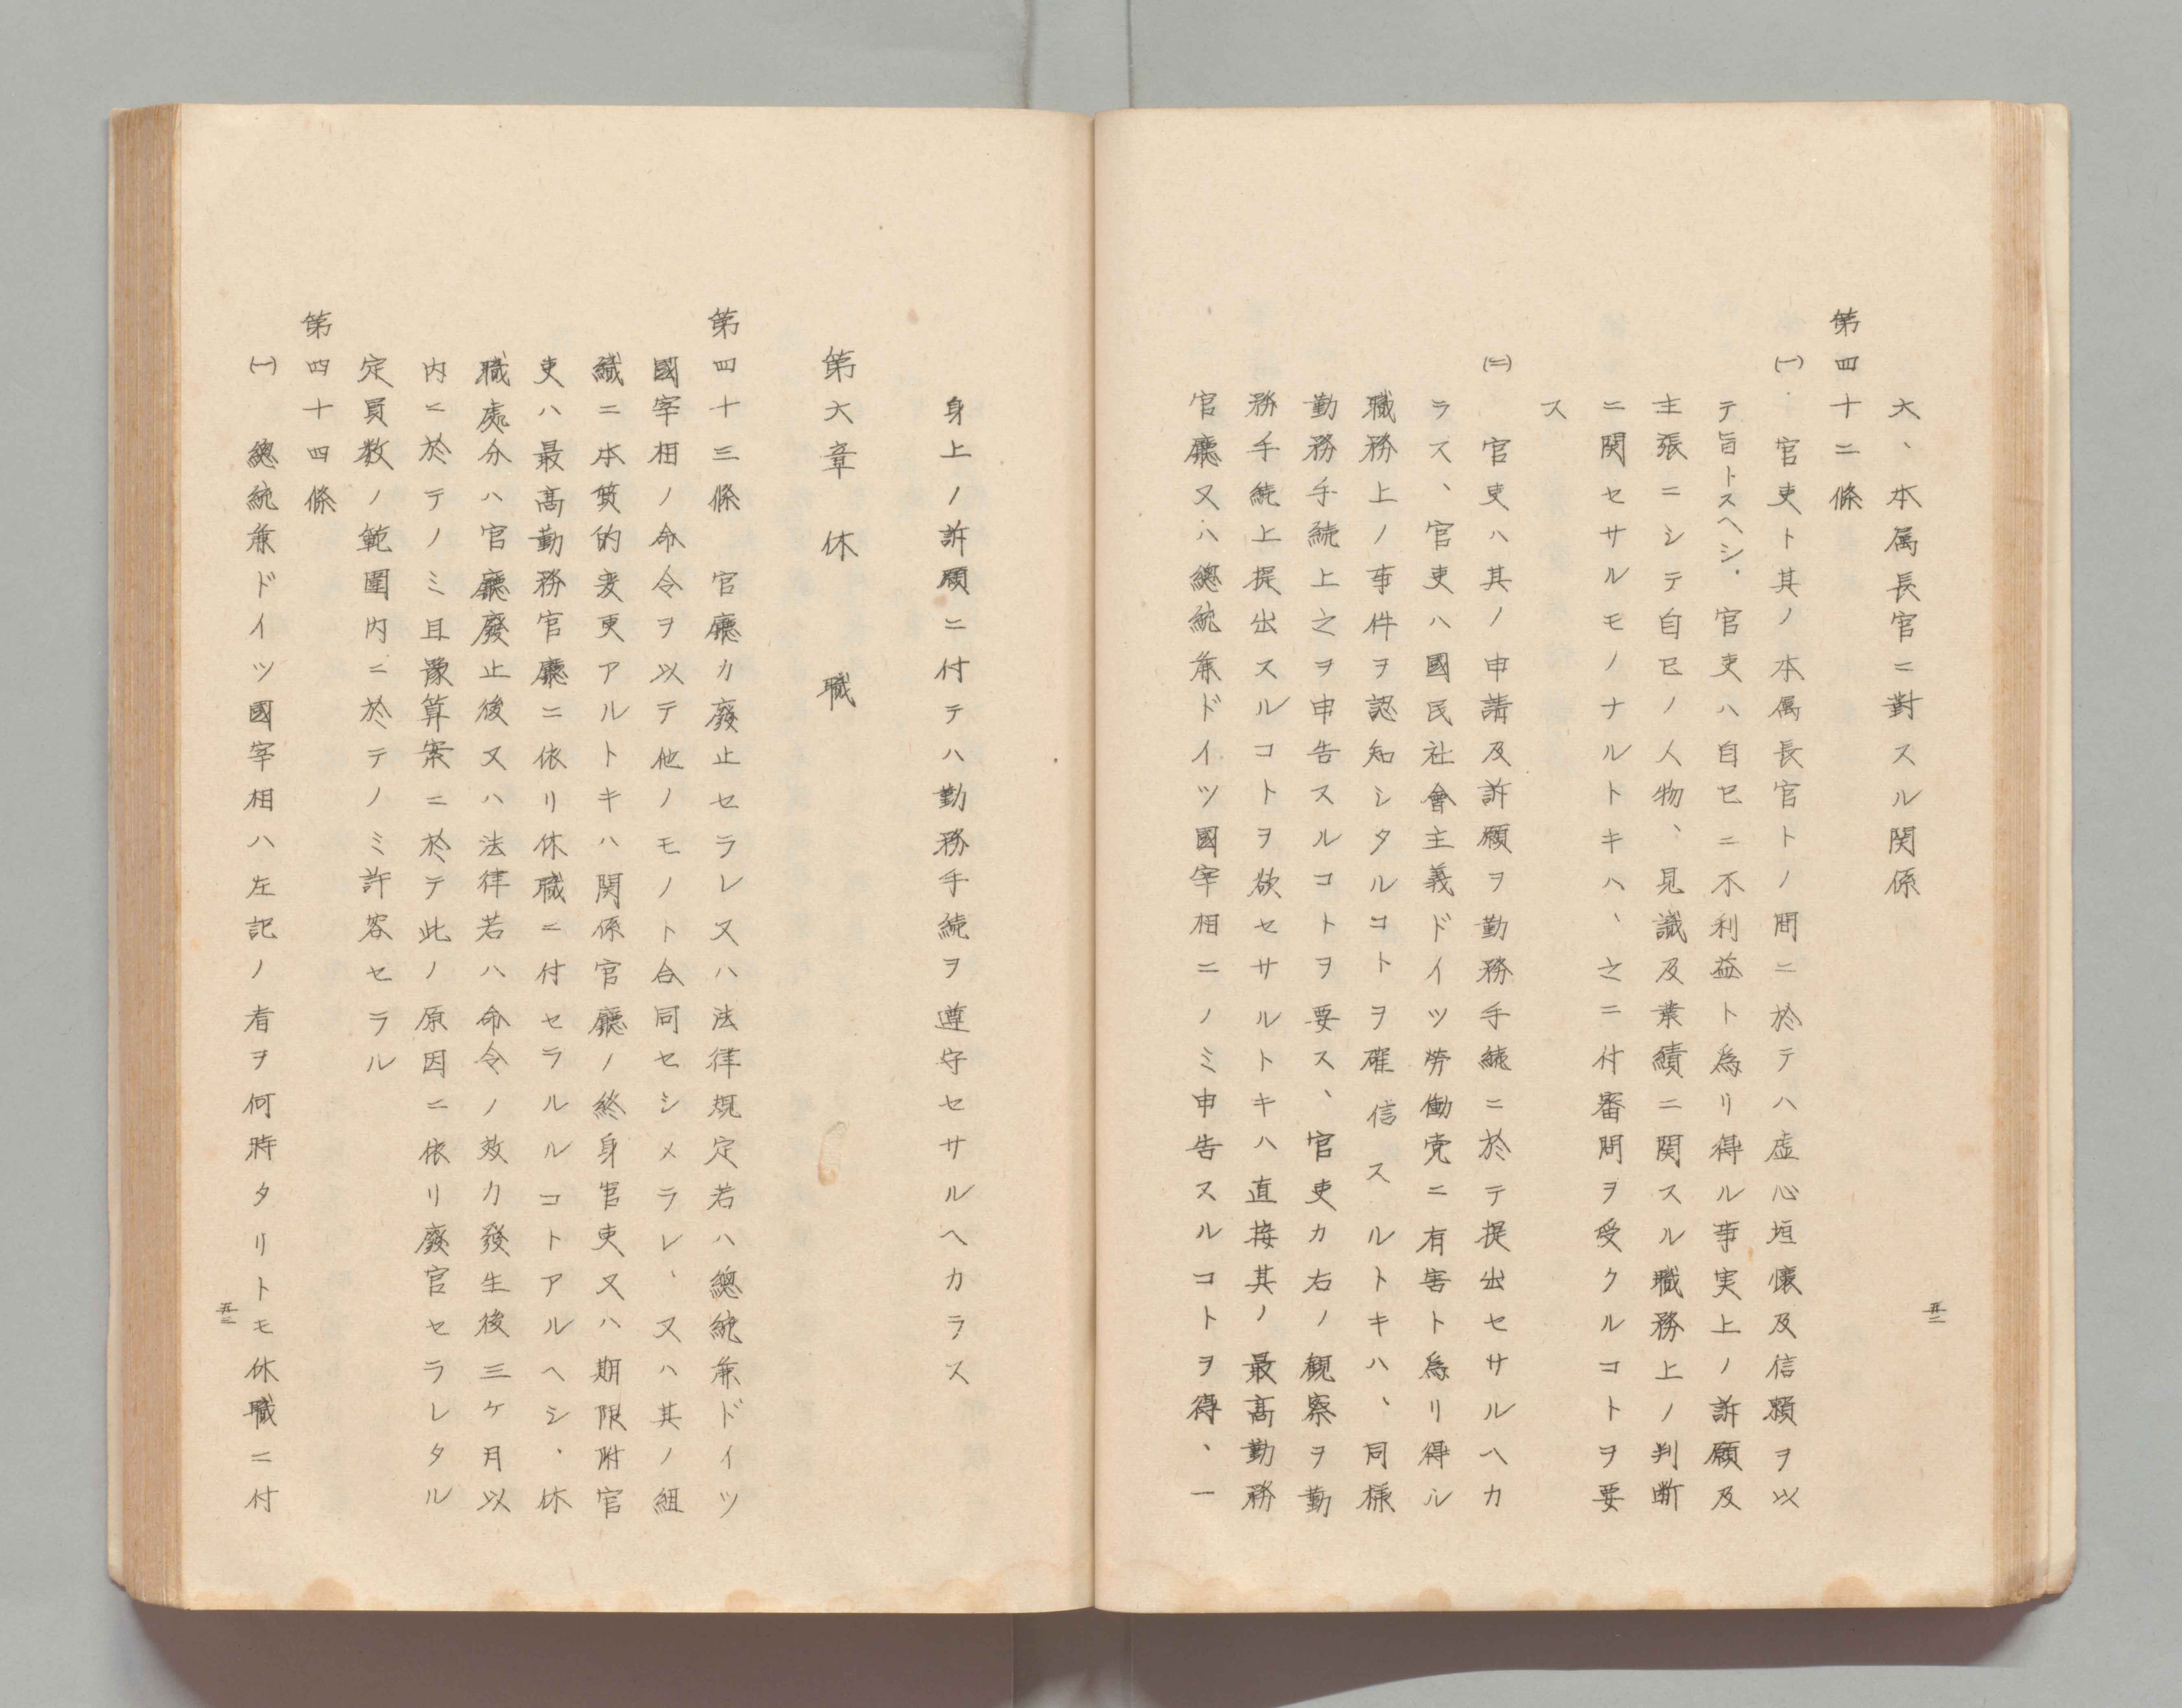 六、本属長官ニ對スル関係
第四十二條
㈠　官吏ト其ノ本属長官トノ間ニ於テハ虚心垣懐及信頼ヲ以
テ旨トスヘシ．官吏ハ自己ニ不利益ト為リ得ル事実上ノ訴願及
主張ニシテ自己ノ人物、見識及業績ニ関スル職務上ノ判断
ニ関セサルモノナルトキハ、之ニ付審問ヲ受クルコトヲ要
ス
㈡　官吏ハ其ノ申請及訴願ヲ勤務手続ニ於テ提出セサルヘカ
ラス、官吏ハ國民社會主義ドイツ労働党ニ有害ト為リ得ル
職務上ノ事件ヲ認知シタルコトヲ確信スルトキハ、同様
勤務手続上之ヲ申告スルコトヲ要ス、官吏カ右ノ観察ヲ勤
務手続上提出スルコトヲ欲セサルトキハ直接其ノ最高勤務
官廳又ハ總統兼ドイツ國宰相ニノミ申告スルコトヲ得、一
五二
身上ノ訴願ニ付テハ勤務手続ヲ遵守セサルヘカラス
第六章　休　職
第四十三條　官廳カ廢止セラレ又ハ法律規定若ハ總統兼ドイツ
國宰相ノ命令ヲ以テ他ノモノト合同セシメラレ、又ハ其ノ組
織ニ本質的変更アルトキハ関係官廳ノ終身官吏又ハ期限附官
吏ハ最高勤務官廳ニ依リ休職ニ付セラルルコトアルヘシ、休
職處分ハ官廳廢止後又ハ法律若ハ命令ノ效力發生後三ケ月以
内ニ於テノミ且豫算案ニ於テ此ノ原因ニ依リ廢官セラレタル
定員数ノ範圍内ニ於テノミ許容セラル
第四十四條
㈠　總統兼ドイツ國宰相ハ左記ノ者ヲ何時タリトモ休職ニ付
五三